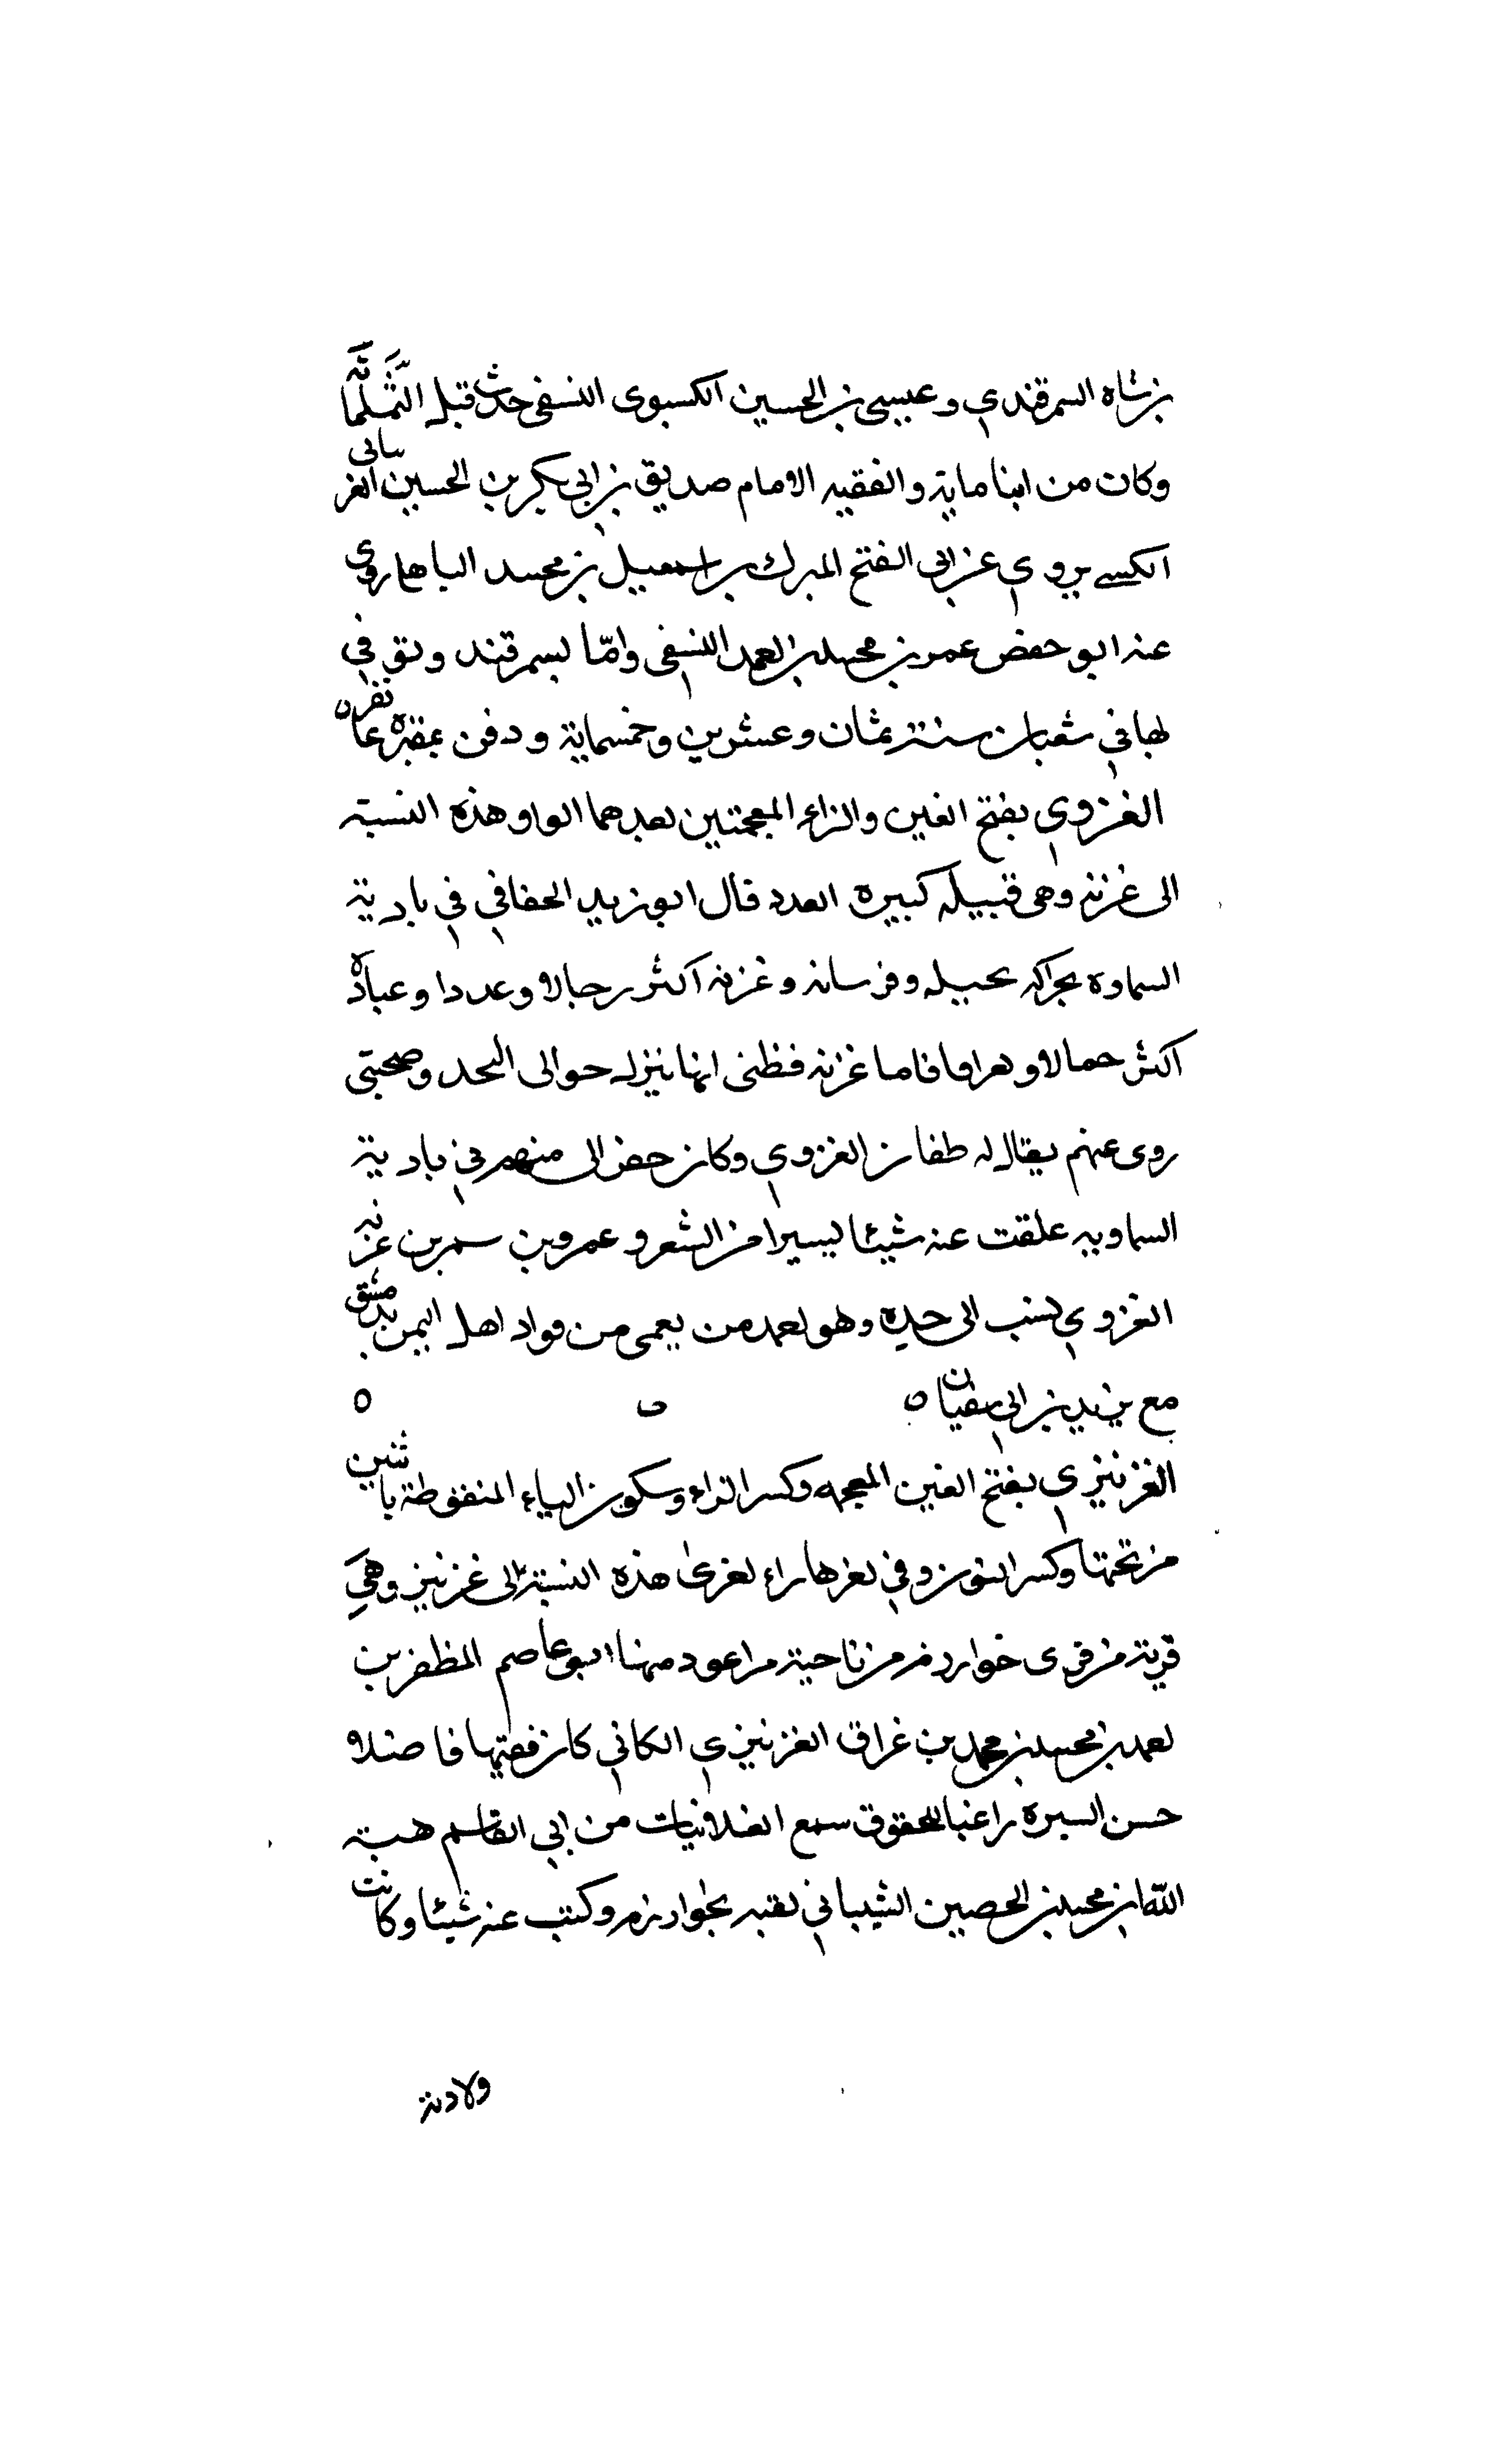 بن شاه السمرقندي وعيسى بن الحسين الكسبوى النسفى حدث قبل الثلثمائة
وكان من ابنا ماية والفقيه الامام صديق بن ابي بكر بن الحسين الغزيانى
الكسى يروي عن ابى الفتح المبرك بن اسمعيل بن محمد الباهلى روى
عنه ابو حفص عمر بن محمد بن احمد النسفى واما بسمرقند وتوفي
بها في شعبان سنة ثمان وعشرين وخمسماية ودفن بمقبرة
الغزوي بفتح الغين والزاء المعجمتين بعدهما الواو هذه النسبة
الى غزنه وهى قبيله كبيرة العدد قال ابو زيد الحفافي في بادية
السماوة بخيله وفرسانه وغزنه اكثر رجالا وعددا وعباده
اكثر جمالا فاما غزنه فظنى انها نزله حوالى
روى عنهم يقال له طفان الغزوي وكان خفر الى منهم في بادية
السماويه علقت عنه شيئا يسيرا من الشعر وعمرو بن سمر بن غزنه
الغزوي ينسب الى جده وهو من قواد اهل اليمن بدمشق
مع يزيد بن ابى سفيان ه ه ه
الغزنيزي بفتح الغين المعجمه وكسر الزاء وسكون الياء المنقوطة باثنين
من تحتها وكسر النون وفي اخرها زاء اخرى هذه النسبة الى غزنيز وهي
قرية من قرى خوارزم من ناحية مراعود منها ابو عاصم المظفر بن
احمد بن محمد بن محمد بن عراق الغزنيزي الكاني كان فقيها فاضلا
حسن السيره راغبا للحقوق سمع الغلانيات من ابي القاسم هبة
الله بن محمد بن الحصين الشيباني لقيته بخوارزم وكتب عنه شيئا وكانت
ولادته